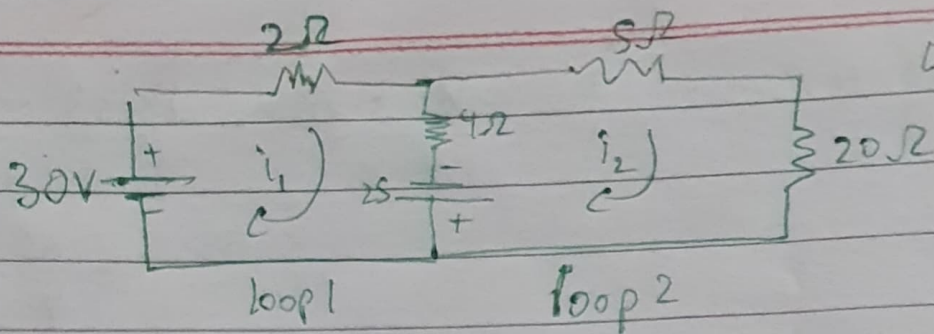 2Ω 5Ω
4Ω
30V + - i₁ 25 - + i₂ 20Ω
loop1 loop2